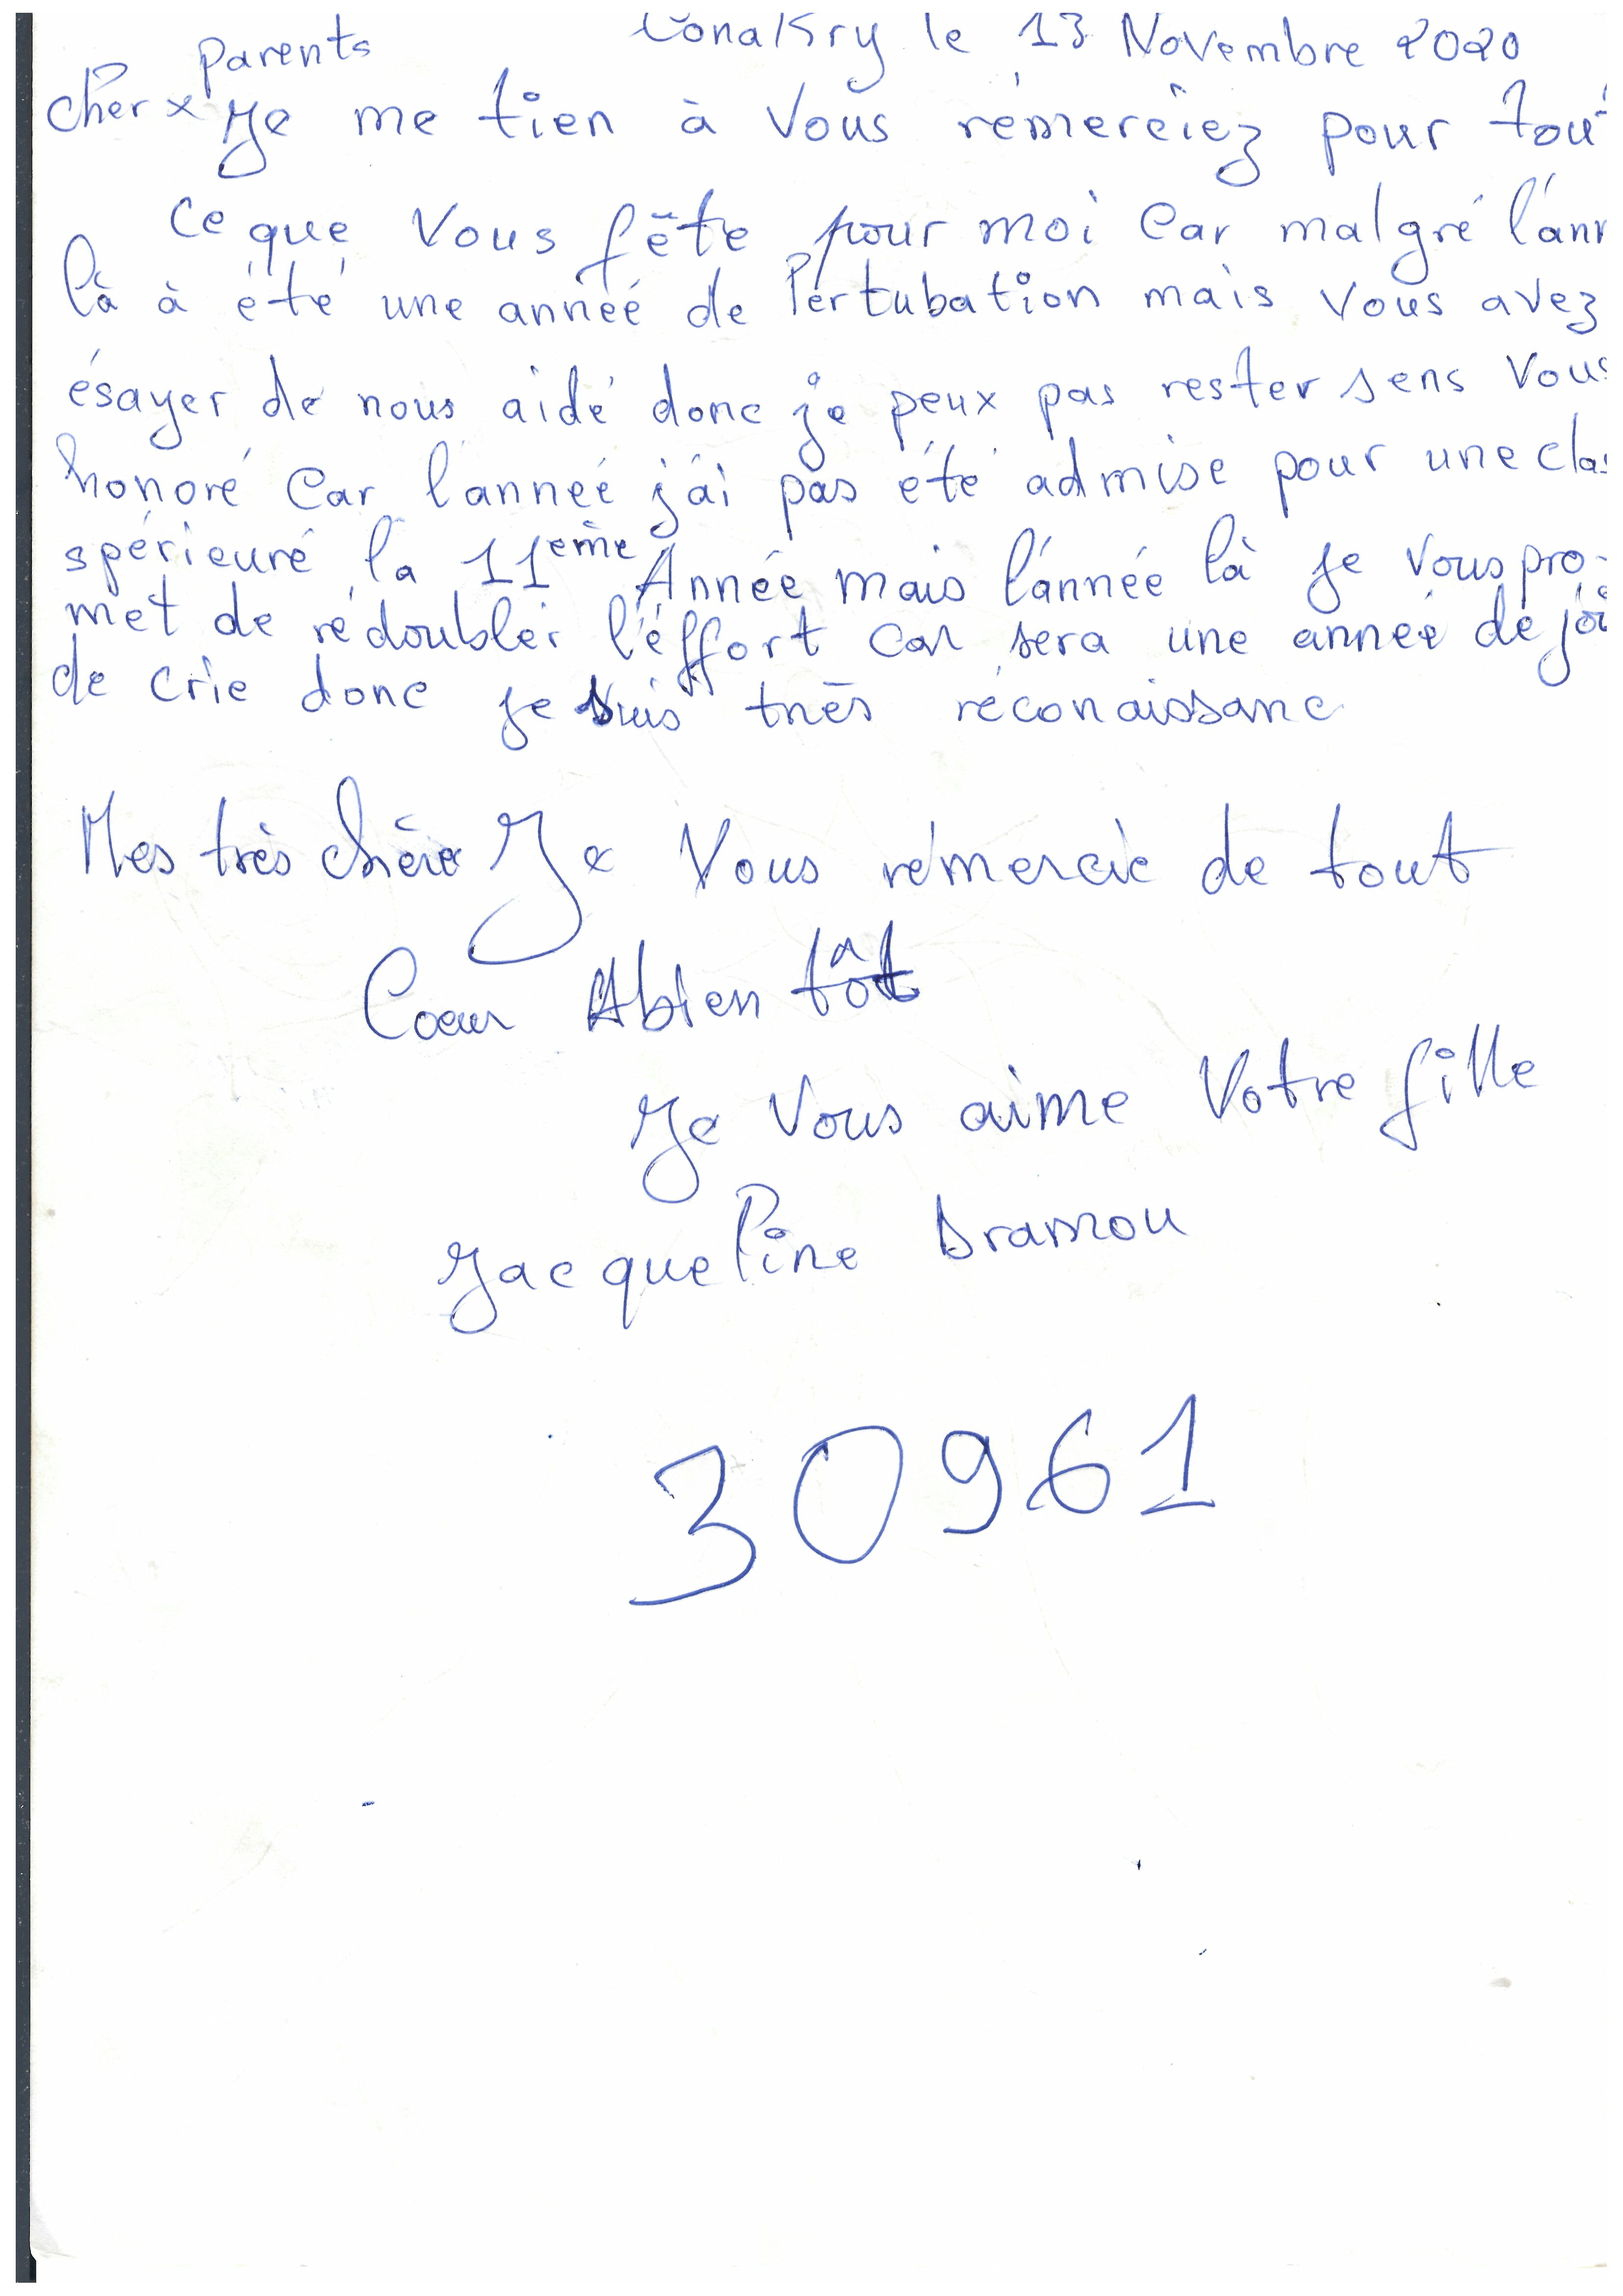 Conakry le 13 Novembre 2020
parents
cher x Je me tien à Vous rémercîez pour tout
ce que Vous fête pour moi Car malgré l'ann
là à été une année de Pertubation mais Vous avez
ésayer de nous aidé donc je peux pas rester sens Vous
honoré Car l'année j'ai pas été admise pour une clas
spérieuré la 11ème Année mais l'année là je Vous pro-
met de rédoubler l'éffort car sera une année de joi
de crie donc je suis très réconaissanc
Mes très chère Je Vous rémercie de tout
Coeur Abien tôt
Je Vous aime Votre fille
Jacqueline Dramou
30961